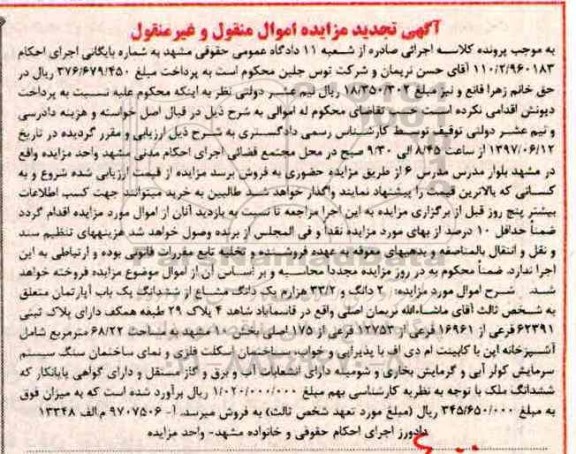 آگهی تجدید مزایده اموال منقول و غیرمنقول
به موجب پرونده کلاسه اجرائی صادره از شعبه ۱۱ دادگاه عمومی حقوقی مشهد به شماره بایگانی اجرای احکام
۱۱۰/۲/۹۶۰۱۸۳ آقای حسن نریمان و شرکت توس جلین محکوم است به پرداخت مبلغ ۳۷۶/۶۷۹/۴۵۰ ریال در
حق خانم زهرا قانع و نیز مبلغ ۱۸/۳۵۰/۳۰۲ ریال نیم عشر دولتی نظر به اینکه محکوم علیه نسبت به پرداخت
دیونش اقدامی نکرده است حسب تقاضای محکوم له اموالی به شرح ذیل در قبال اصل خواسته و هزینه دادرسی
و نیم عشر دولتی توقیف توسط کارشناس رسمی دادگستری به شرح ذیل ارزیابی و مقرر گردیده در تاریخ
۱۳۹۷/۰۶/۱۲ از ساعت ۸/۴۵ الی ۹/۳۰ صبح در محل مجتمع قضائی اجرای احکام مدنی مشهد واحد مزایده واقع
در مشهد بلوار مدرس مدرس ۶ از طریق مزایده حضوری به فروش برسد مزایده از قیمت ارزیابی شده شروع و به
کسانی که بالاترین قیمت را پیشنهاد نمایند واگذار خواهد شد طالبین به خرید میتوانند جهت کسب اطلاعات
بیشتر پنج روز قبل از برگزاری مزایده به این اجرا مراجعه تا نسبت به بازدید آنان از اموال مورد مزایده اقدام گردد
ضمناً حداقل ۱۰ درصد از بهای مورد مزایده نقداً و فی المجلس از برنده وصول خواهد شد هزینههای تنظیم سند
و نقل و انتقال بالمناصفه و بدهیهای معوقه به عهده فروشنده و تخلیه تابع مقررات قانونی بوده و ارتباطی به این
اجرا ندارد. ضمناً محکوم به در روز مزایده مجددا محاسبه و بر اساس آن از اموال موضوع مزایده فروخته خواهد
شد. شرح اموال مورد مزایده: ۲ دانگ و ۳۳/۲ هزارم یک دانگ مشاع از ششدانگ یک باب آپارتمان متعلق
به شخص ثالث آقای ماشاءالله نریمان اصلی واقع در قاسم‌آباد شاهد ۴ پلاک ۲۹ طبقه همکف دارای پلاک ثبتی
۶۲۳۹۱ فرعی از ۱۶۹۶۱ فرعی از ۱۲۷۵۳ فرعی از ۱۷۵ اصلی بخش ۱۰ مشهد به مساحت ۶۸/۲۲ مترمربع شامل
آشپزخانه اپن با کابینت ام دی اف با پذیرایی و خواب ساختمان اسکلت فلزی و نمای ساختمان سنگ سیستم
سرمایش کولر آبی و گرمایش بخاری و شومینه دارای انشعابات آب و برق و گاز مستقل و دارای گواهی پایانکار که
ششدانگ ملک با توجه به نظریه کارشناسی بهم مبلغ ۱/۰۲۰/۰۰۰/۰۰۰ ریال برآورد شده است که به میزان فوق
به مبلغ ۳۴۵/۶۵۰/۰۰۰ ریال (مبلغ مورد تعهد شخص ثالث) به فروش میرسد. آ- ۹۷۰۷۵۰۶ م.الف ۱۳۳۴۸
دادورز اجرای احکام حقوقی و خانواده مشهد- واحد مزایده